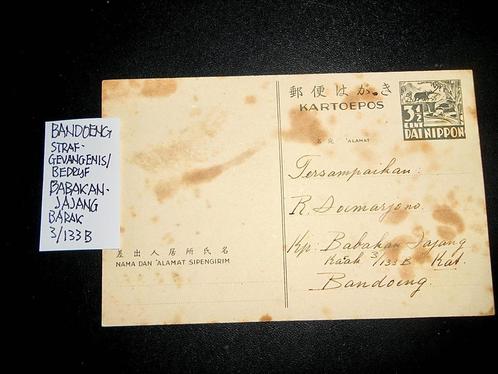 BANDOENG
STRAF-
GEVANGENIS/
BEDRIJF
BABAKAN-
JAJANG
BARAK
3/133B
郵便はがき
KARTOEPOS
3½
CENT
DAI NIPPON
名宛 'ALAMAT
Tersampaikan:
R. Soemarjono.
Kp. Babakan Jajang
3/133 B Kal.
Bandoeng.
差出人居所氏名
NAMA DAN 'ALAMAT SIPENGIRIM